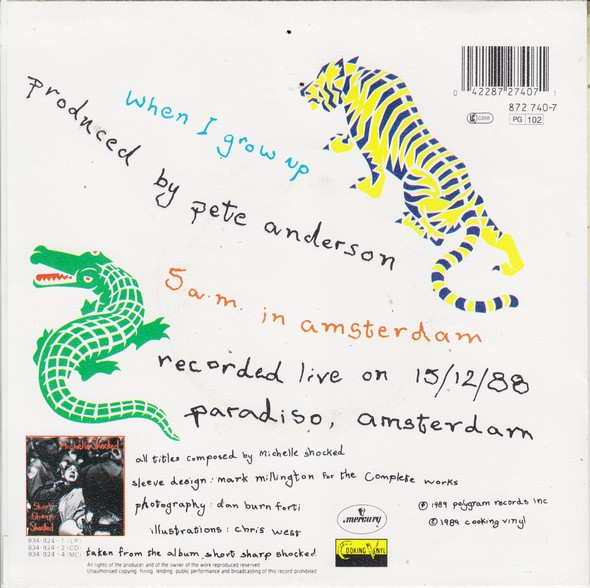 when I grow up
produced by pete anderson
0 42287 27407 1
872 740-7
0268
PG 102
5 a.m. in amsterdam
recorded live on 15/12/88
paradiso, amsterdam
Michelle Shocked
Short
Sharp
Shocked
all titles composed by Michelle shocked
sleeve design: mark millington for the Complete works
photography: dan burn forti
illustrations: chris west
mercury
COOKING VINYL
℗ 1989 polygram records inc
© 1989 cooking vinyl
834-924-1 (LP)
834-924-2 (CD)
834-924-4 (MC)
taken from the album short sharp shocked
All rights of the producer and of the owner of the work reproduced reserved
Unauthorised copying, hiring, lending, public performance and broadcasting of this record prohibited.